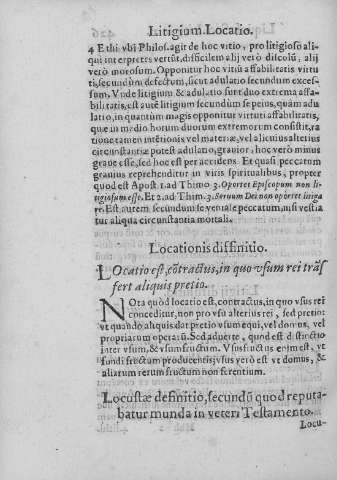 Litigium. Locatio.
4 Ethi vbi Philos. agit de hoc vitio, pro litigioso ali-
qui interpretes vertūt, difficilem alij verò discolū, alij
verò morosum. Opponitur hoc vitiū affabilitatis virtu
ti, secundùm defectum, sicut adulatio secundum exces-
sum. Vnde litigium & adulatio sunt duo extrema affa-
bilitatis, est autē litigium secundùm se peius, quàm adu
latio, in quantum magis opponitur virtuti affabilitatis,
quæ in medio horum duorum extremorum consistit, ra
tione tamen intētionis vel materiæ, vel alicuius alterius
circūstantiæ potest adulatio, grauior, hoc verò minus
graue esse, sed hoc est per accidens. Et quasi peccatum
granius reprehenditur in viris spiritualibus, propter
quod est Apost 1. ad Thimo 3. Oportet Episcopum non li-
tigiosum esse. Et 2. ad Tim. 2. Seruum Dei non oportet litiga
re. Est autem secundum se veniale peccatum, nisi vestia
tur aliqua circunstantia mortali.
Locationis diffinitio.
LOcatio est, cōtractus, in quo vsum rei trās
fert aliquis pretio.
NOta quòd locatio est, contractus, in quo vsus rei
conceditur, non pro vsu alterius rei, sed pretio:
vt quando aliquis dat pretio vsum equi, vel domus, vel
propriarum operarū. Sed aduerte, quod est distinctio
inter vsum, & vsumfructum. Vsusfructus enim est, vt
fundi fructum producentis, vsus verò est vt domus, &
aliarum rerum fructum non ferentium.
LOcustæ definitio, secundū quod reputa-
batur munda in veteri Testamento.
Locu-